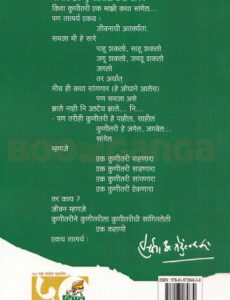 किंवा कुणीतरी एक माझी कथा सांगेल...
पण तात्पर्य एकच :
जीवनाची अतर्क्यता.
समजा मी हे सारे
पाहू शकलो, साहू शकलो
जगू शकलो, जगवू शकलो
जगलो
तर अर्थात्
मीच ही कथा सांगणार (हे ओघाने आलेच)
पण समजा असे
झाले नाही नि उलटेच झाले... नि...
- पण तरीही कुणीतरी हे पाहील, साहील
कुणीतरी हे जगेल, जगवेल...
सांगेल
म्हणजे
एक कुणीतरी पाहणारा
एक कुणीतरी साहणारा
एक कुणीतरी सांगणारा
एक कुणीतरी ऐकणारा
तर काय ?
जीवन म्हणजे
कुणीतरीने कुणीतरीला कुणीतरीची सांगितलेली
एक कहाणी
एकच तात्पर्य :
BOOKGANGA
५०